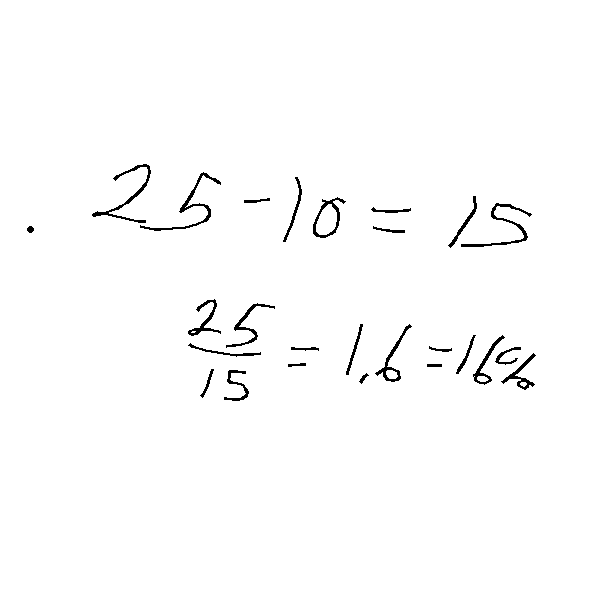 . 25 - 10 = 15
25/15 = 1,6 = 16%